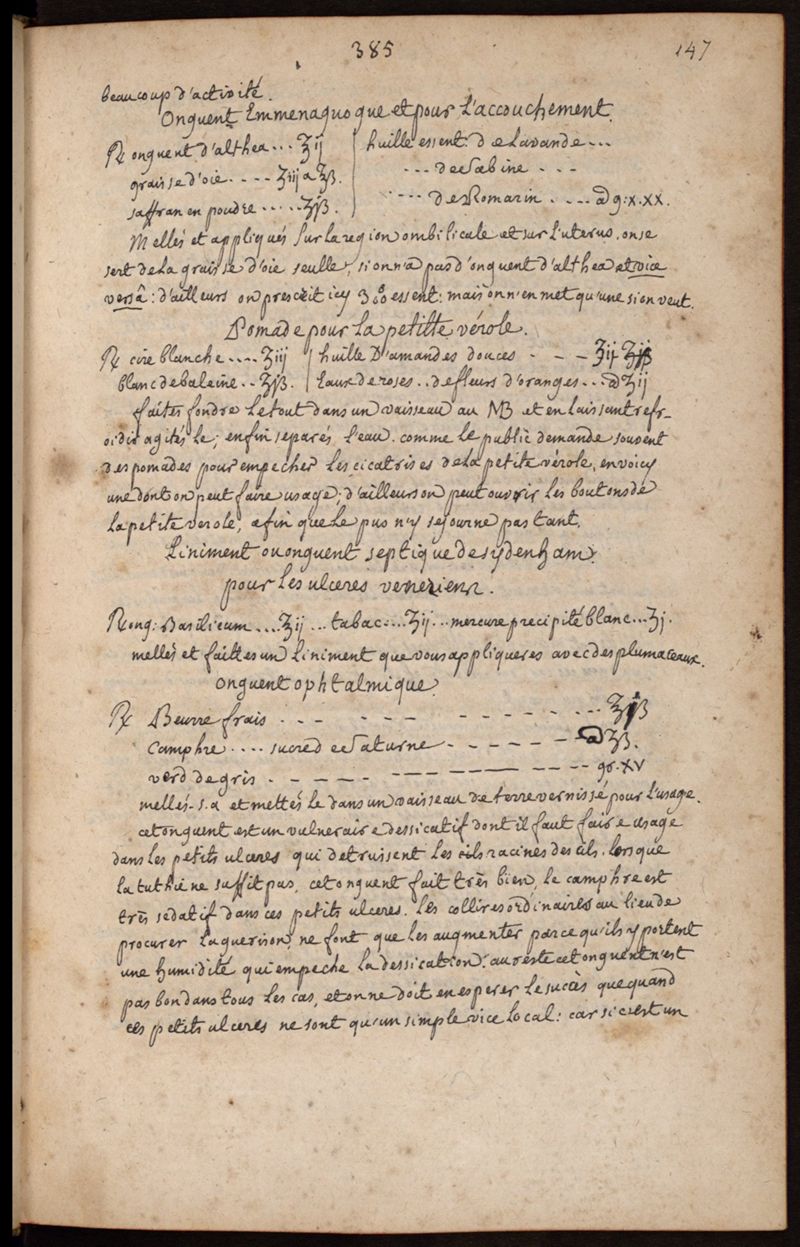 385
147
beaucoup d'activité.
Onguent Emmenaguogue et pour L'accouchement.
℞ onguent d'althea... ʒij
graisse d'oie.... ʒiij a ℥ß.
saffran en poudre..... ʒjß.
huille essent. de Lavande...
... de Sabine ...
.... de Romarin ..... a g: x. XX.
Mellés et appliqués Sur la region ombilicale et sur L'uterus. on se
sert de La graisse d'oie seulle, si on n'a pas d'onguent d'althea et vice
versâ: d'ailleurs on prescrit icy 3 essent: mais on n'en met qu'une si on veut.
Pomade pour La petitte vérole.
℞ cire blanche.... ʒiij
blanc de baleine.. ʒjß.
huille D'amandes douces - - - ʒij ʒjß
Eaux de roses.. de fleurs d'oranges... a ʒij
faites fondre Le tout dans un vaisseau au MB et en Laissant refr-
oidir agités le; enfin separés L'eau. comme Le public demande souvent
des pomades pour empecher Les cicatrises de La petite vérole, en voicy
une dont on peut faire usage; d'ailleurs on peut ouvrir Les boutons de
La petite verole, afin que Le pus n'y sejourne pas tant.
Liniment ou onguent septique de sydenham
pour Les ulceres veneriens.
℞ ong: Basilicum.... ʒij ... tabac.... ʒij ... mercure precipité blanc... ʒj.
mellés et faittes un Liniment que vous appliqueres avec des plumaceaux.
Onguent ophtalmique.
℞ Beurre frais - - - - - - - - - - - - ... ʒjß
Camphre.... sucre de Saturne - - - - - - a ʒß.
verd de gris - - - - - - - - - - - - gr. XV
mellés. s. a et mettés Le dans un vaisseau de terre vernissé pour L'usage.
cet onguent est un vulneraire dessicatif dont il faut faire usage
dans Les petits ulceres qui detruissent Les cils racines des cils. Lorsque
La tuthie ne suffit pas, cet onguent fait trés bien, Le camphre est
trés sedatif dans ces petits ulceres. Les collires ordinaires au lieu de
procurer La guerison, ne font que Les augmenter parce qu'ils y portent
une humidité qui empeche La dessication. au reste cet onguent n'est
pas bon dans tous Les cas, et on ne doit en esperer Le succès que quand
ces petits ulceres ne sont qu'un simple vice Local: car si c'est un